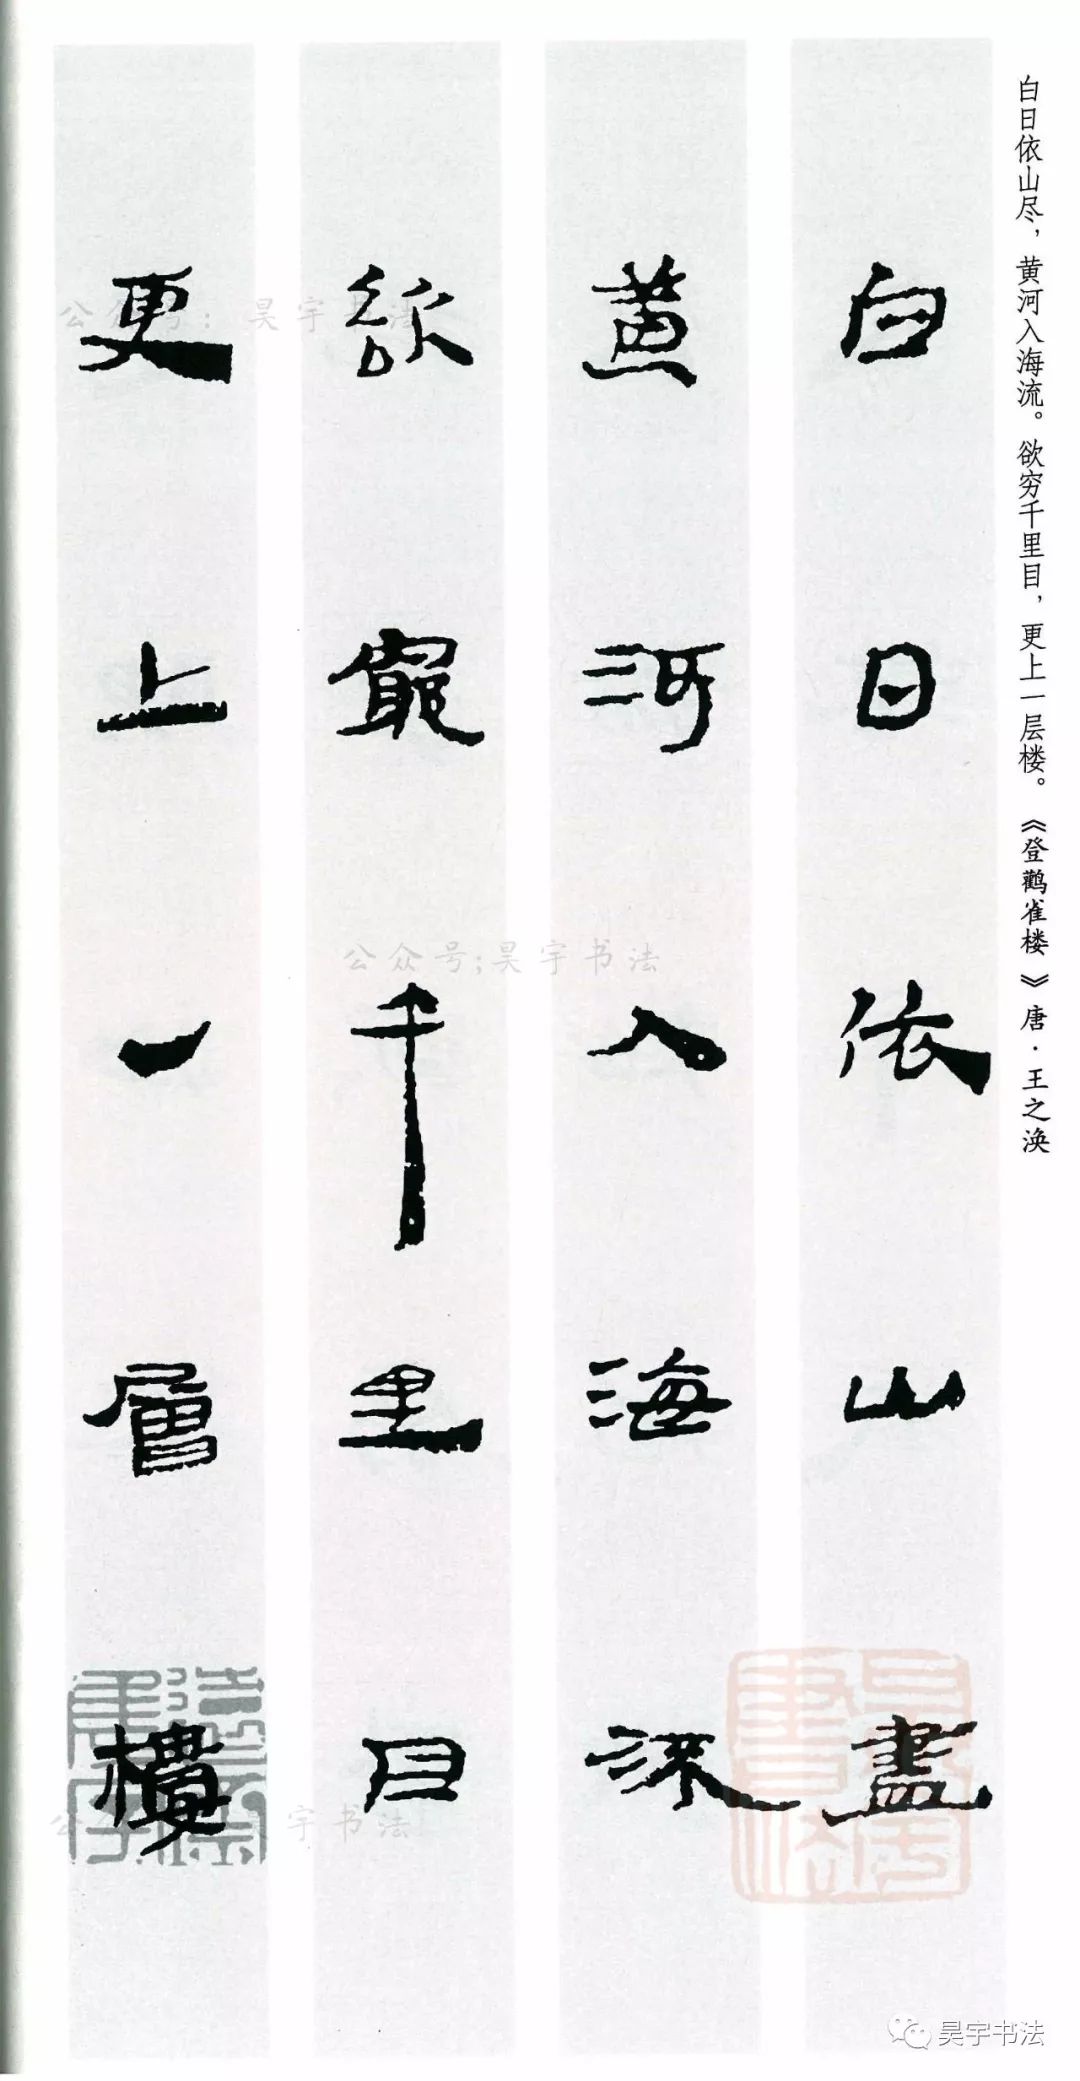 白日依山尽，黄河入海流。欲穷千里目，更上一层楼。《登鹳雀楼》唐·王之涣
白日依山盡
黃河入海流
欲窮千里目
更上一層樓
公众号：昊宇书法
公众号;昊宇书法
宇书法
昊宇书法